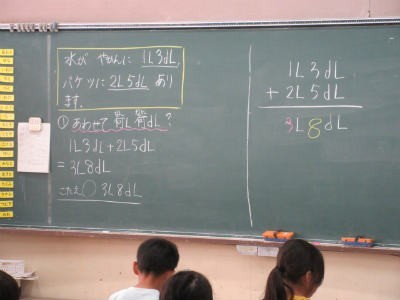 水が やかんに 1L3dL、
バケツに 2L5dL あり
ます。
① あわせて 何L何dL?
1L3dL+2L5dL
=3L8dL
こたえ 3L8dL
1L3dL
+ 2L5dL
3L8dL